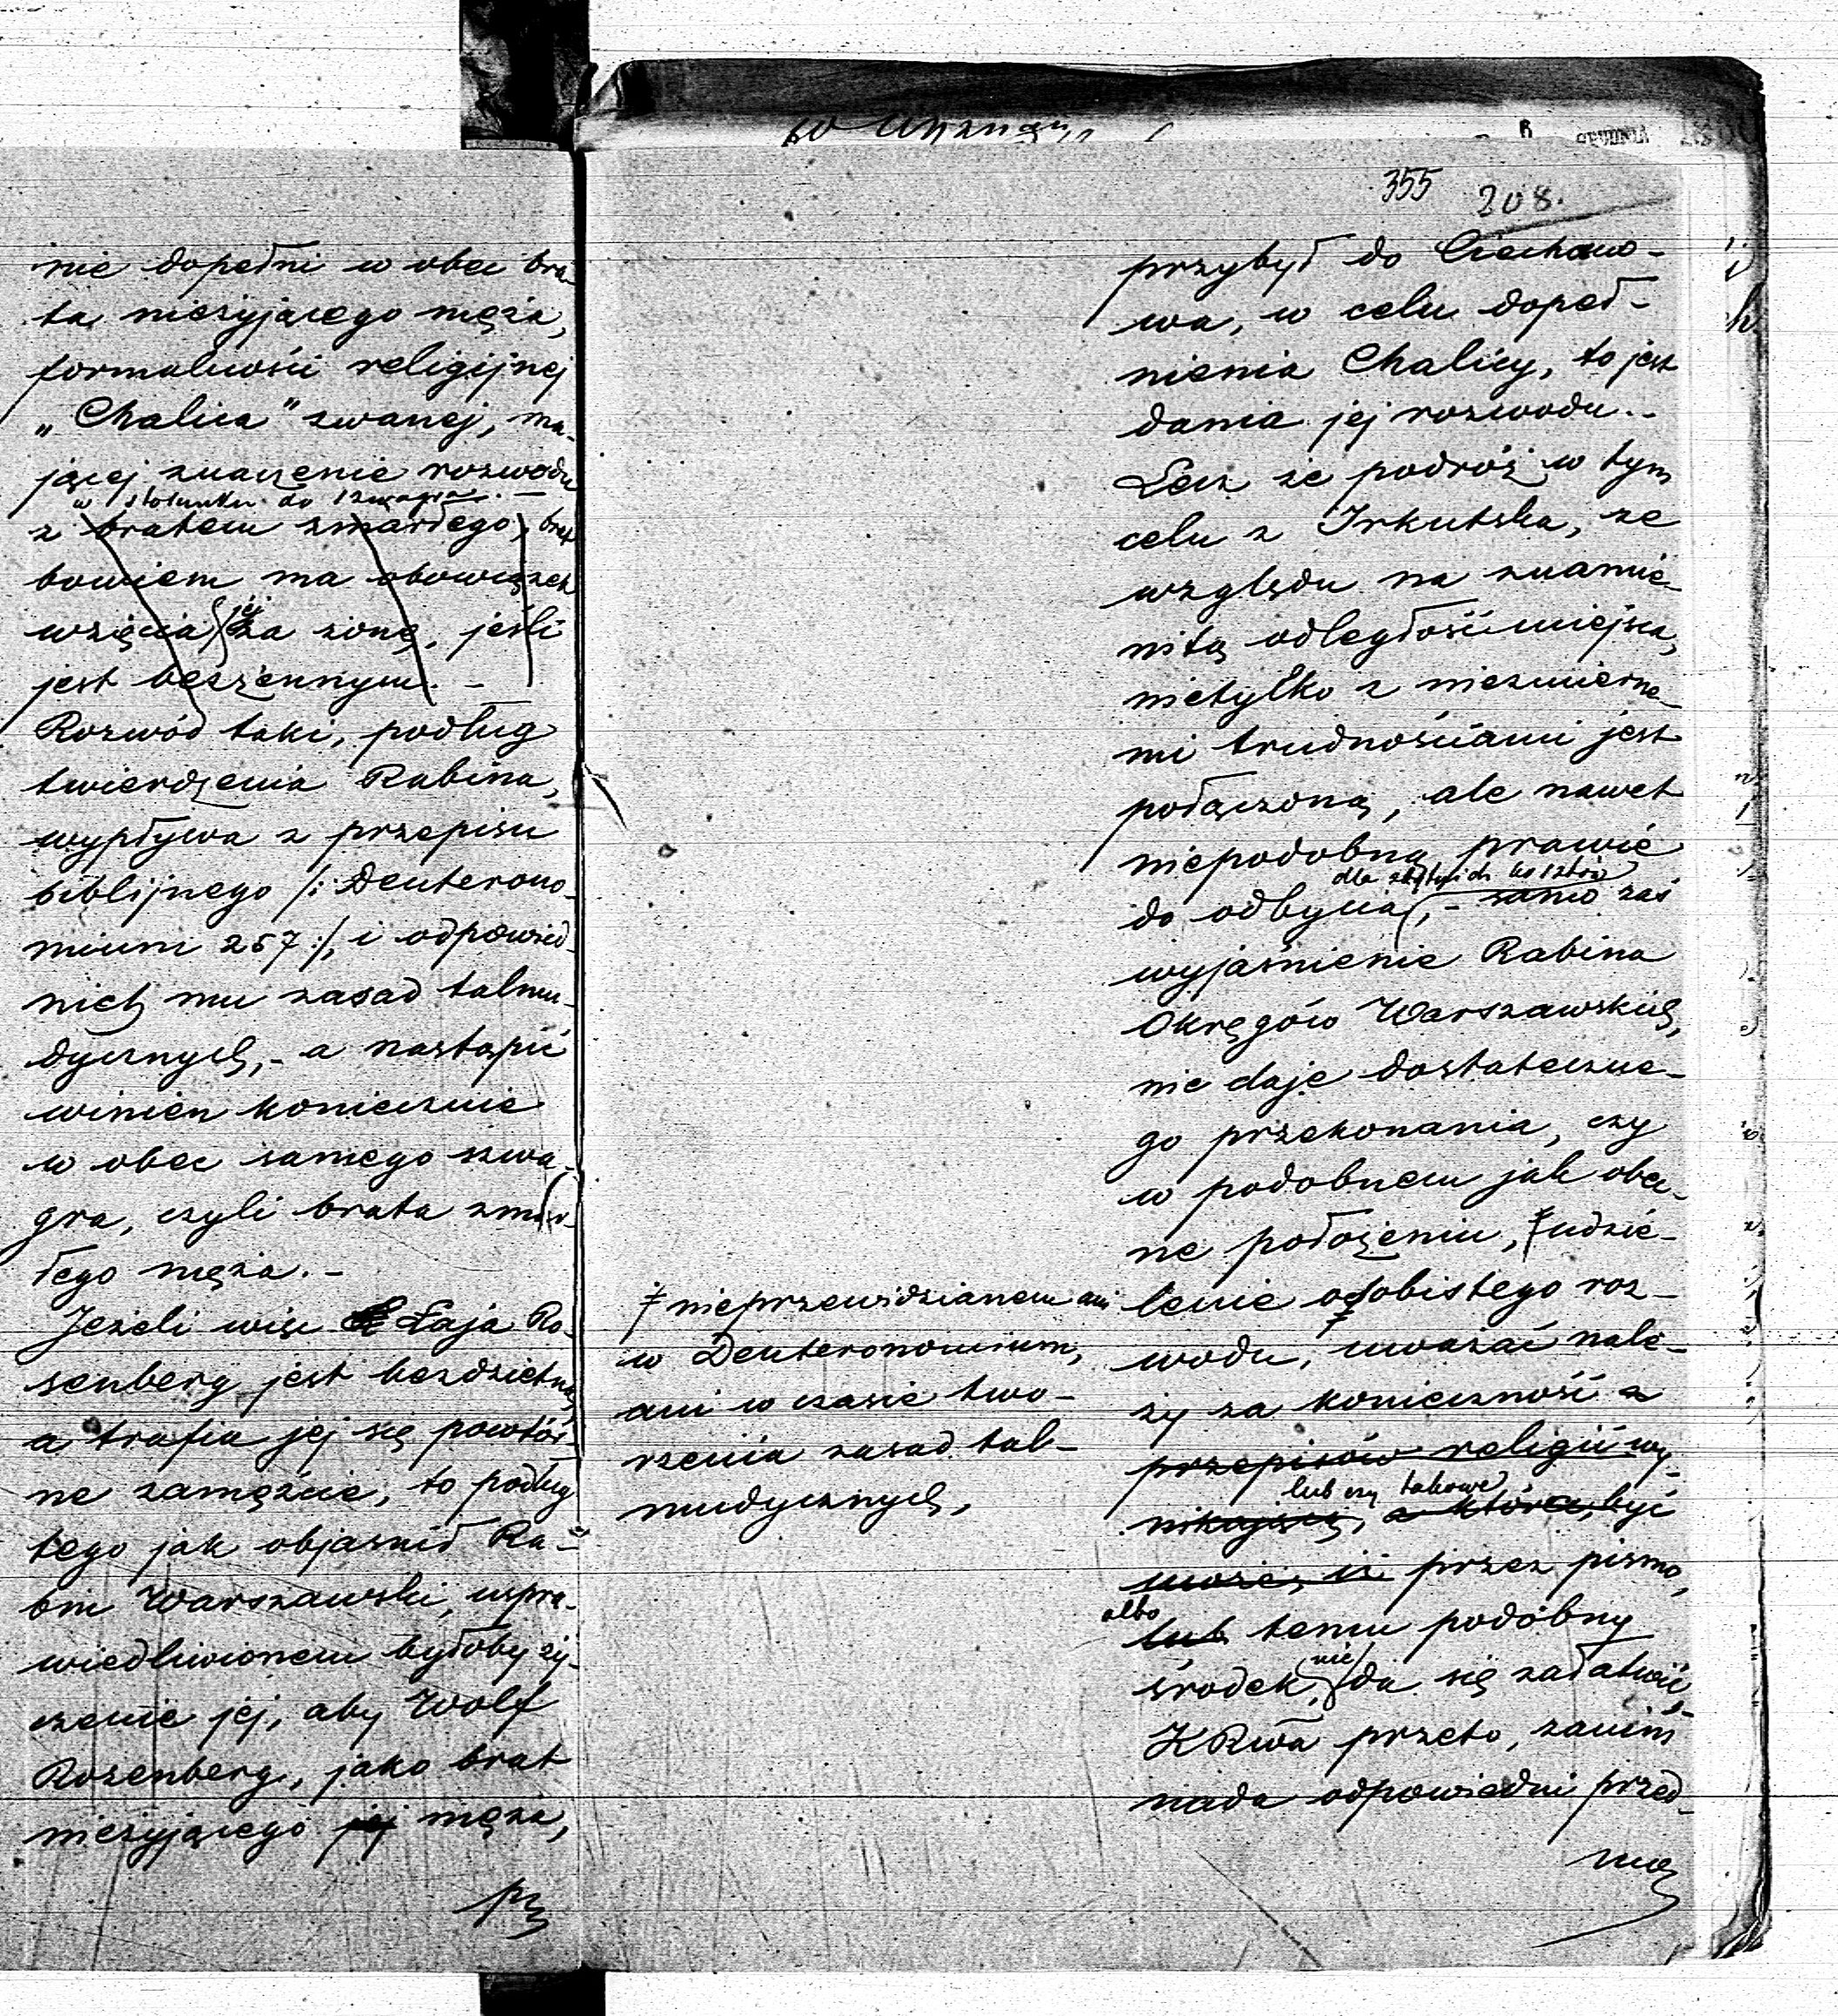 nie dopełni w obec bra-
ta nieżyjącego męża,
formalności religijnej
„Chalica" zwanej, ma-
jącej znaczenie rozwodu
w stosunku do szwagra. —
z bratem zmarłego, brat
bowiem ma obowiązek
wzięcia jej za żonę, jeśli
jest bezżennym. —
Rozwód taki, podług
twierdzenia Rabina,
wypływa z przepisu
biblijnego /: Deuterono-
mium 257 :/, i odpowied-
nich mu zasad talmu-
dycznych, - a nastąpić
winien koniecznie
w obec samego szwa-
gra, czyli brata zmar-
łego męża. -
Jeżeli więc Łaja Ro-
senberg jest bezdzietną,
a trafia jej się powtór-
ne zamęźcie, to podług
tego jak objaśnił Ra-
bin Warszawski, uspra-
wiedliwionem byłoby ży-
czenie jej, aby Wolf
Rozenberg, jako brat
nieżyjącego jej męża,
przy
355 208.
przybył do Ciechano-
wa, w celu dopeł-
nienia Chalicy, to jest
dania jej rozwodu. -
Lecz że podróż w tym
celu z Irkutska, ze
względu na znamie-
nitą odległość miejsca,
nietylko z niezmierne-
mi trudnościami jest
połączoną, ale nawet
niepodobną prawie
dla zbytnich kosztów
do odbycia, - samo zaś
wyjaśnienie Rabina
Okręgów Warszawskich,
nie daje dostateczne-
go przekonania, czy
w podobnem jak obec-
ne położeniu, ǂ udzie-
lenie osobistego roz-
wodu, uważać nale-
ży za konieczność z
przepisów religii wy-
lub czy takowe
nikającą, a która, być
może, iż przez pismo,
albo
lub temu podobny
środek, nie da się załatwić,-
KRwa przeto, zanim
nada odpowiedni przed-
ǂ nieprzewidzianem ani
w Deuteronomium,
ani w czasie two-
rzenia zasad tal-
mudycznych,